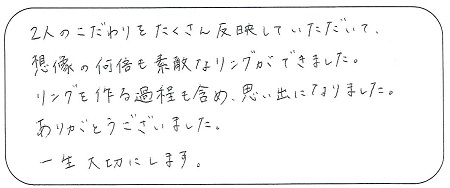 2人のこだわりをたくさん反映していただいて、
想像の何倍も素敵なリングができました。
リングを作る過程も含め、思い出になりました。
ありがとうございました。
一生大切にします。